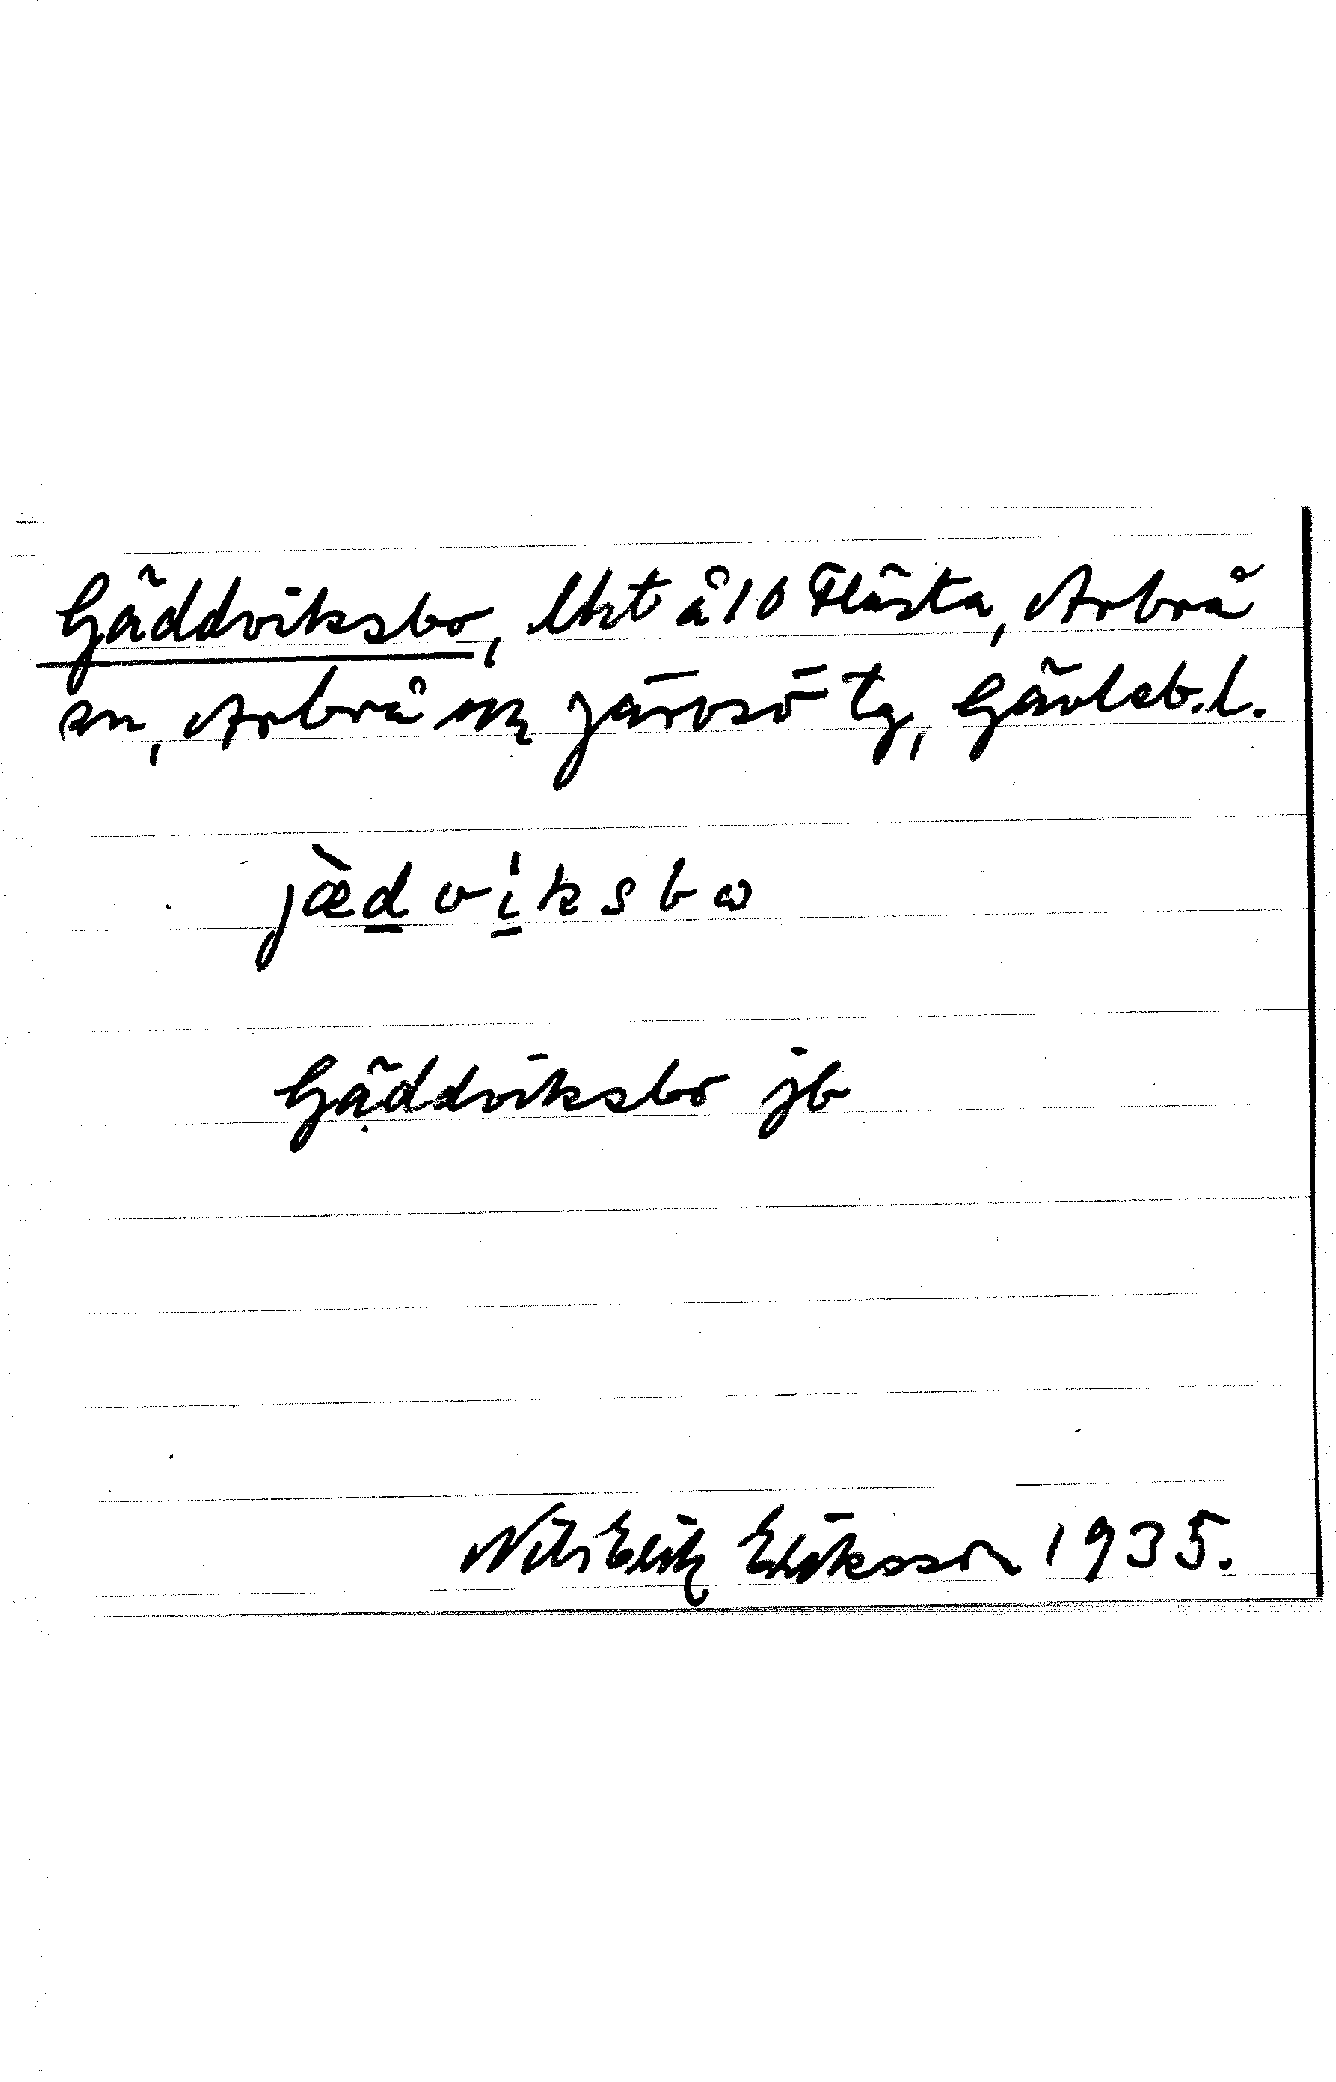 Gäddviksbo, lht å 10 Flästa, Arbrå
sn, Arbrå ock Järvsö tg, Gävleb.l.
jæ̀dvi̍ksbω
Gäddviksbo jb
Nils Erik Eriksson 1935.